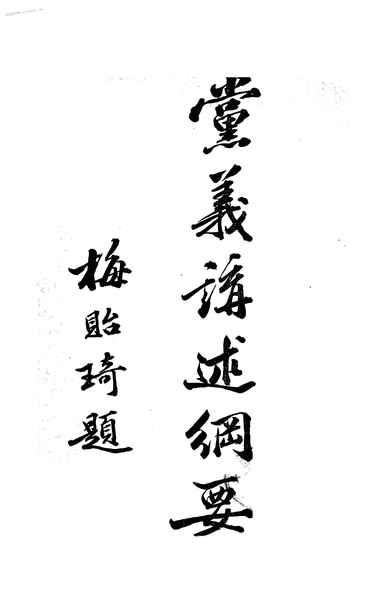 黨義講述綱要
梅貽琦題